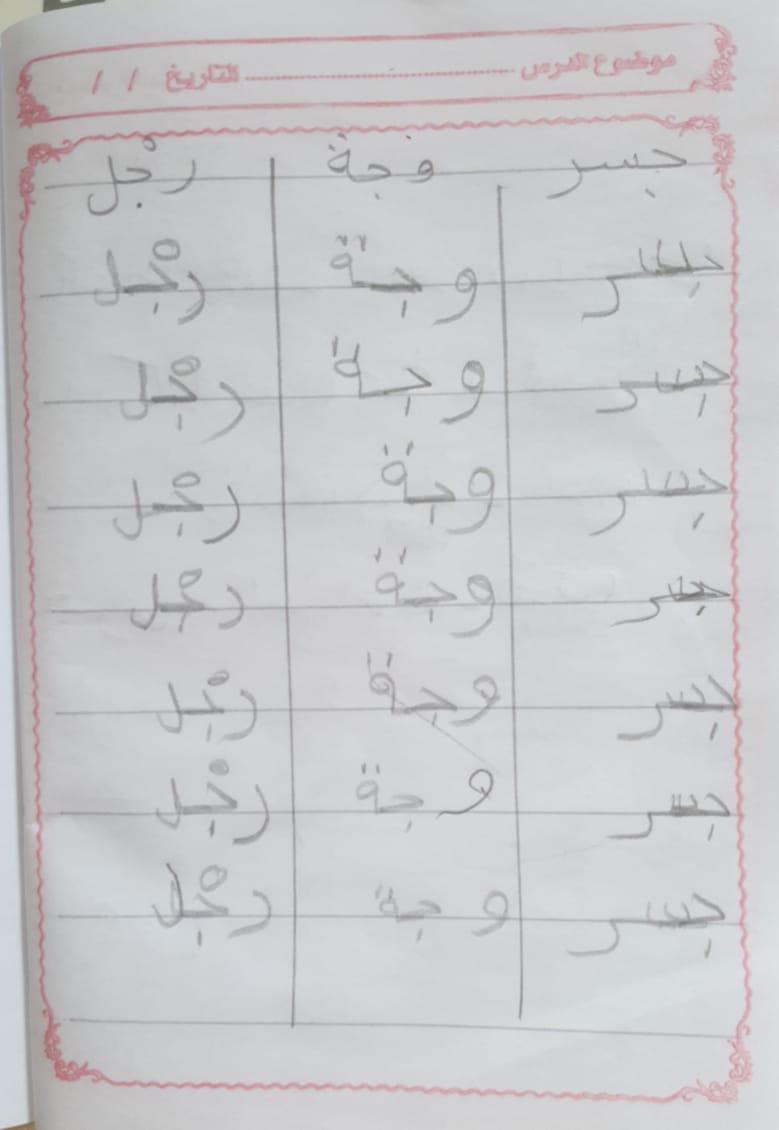 موضوع الدرس ........................ التاريخ / /
جسر وجْة رجْل
جسر وجة رجْل
جسر وجة رجْل
جسر وجة رجْل
جسر وجة رجْل
جسر وجة رجْل
جسر وجة رجْل
جسر وجة رجْل